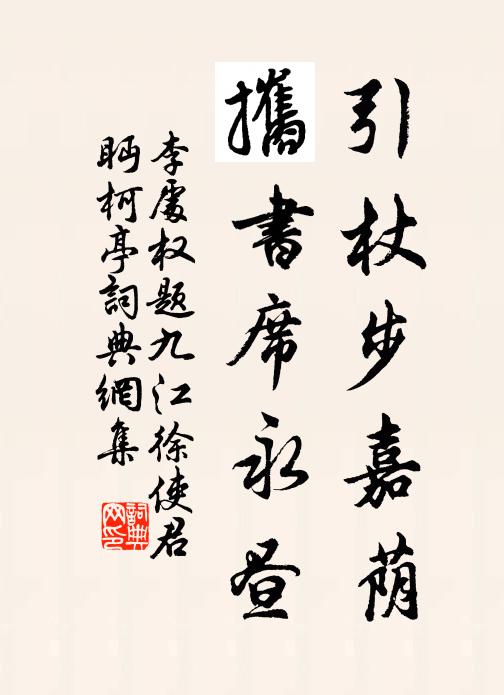 引杖步嘉荫
攜書席永昼
李處权题九江徐使君
眄柯亭詞典網集
詞典网印